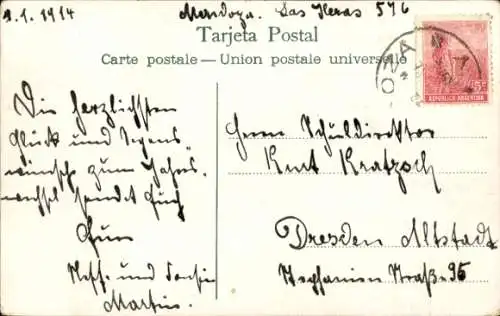 1.1.1914
Mendoza. Las Heras 576
Tarjeta Postal
Carte postale — Union postale universelle
OZA
5c
REPUBLICA ARGENTINA
Die herzlichsten
Glück und Segens
wünsche zum Jahres-
wechsel sendet Euch
Euer
Neffe und Cousin
Martin.
Herrn Schuldirektor
Kurt Kratzsch
Dresden Altstadt
Stephanien Straße 96